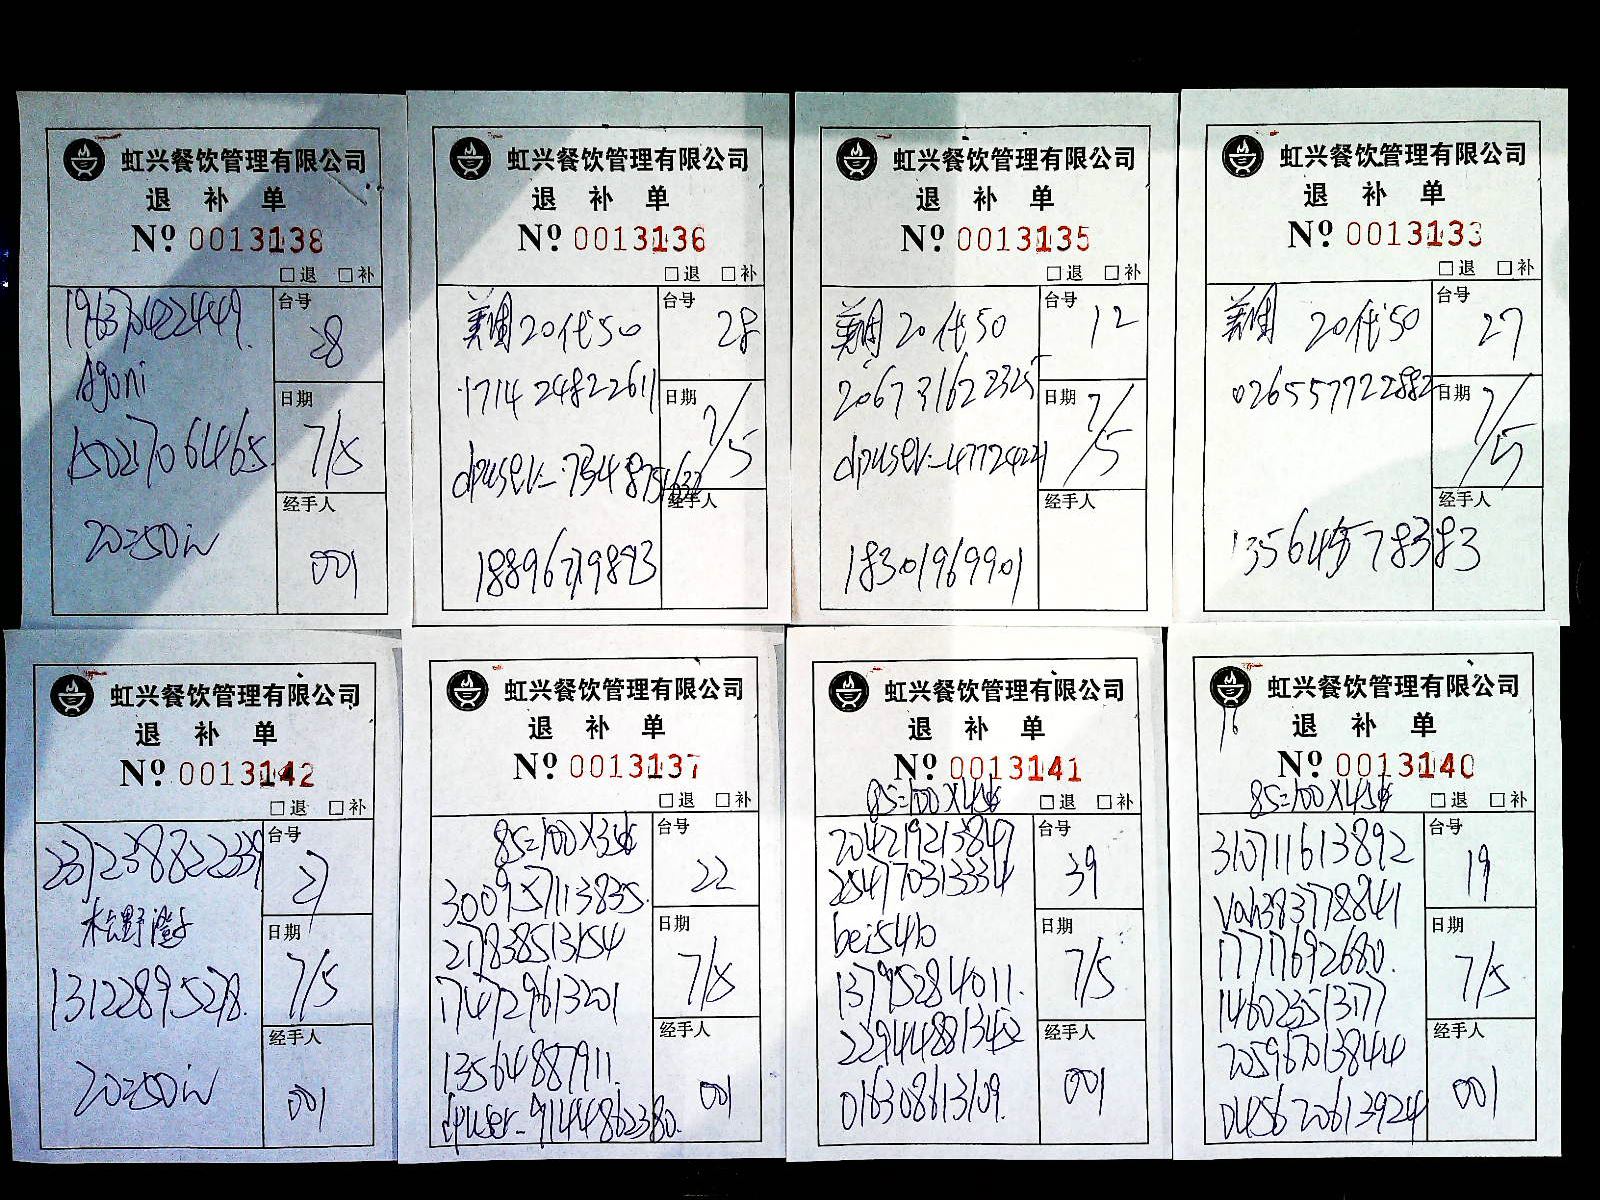 虹兴餐饮管理有限公司
退补单
Nº 0013138
□退 □补
196370422449.
Agoni
15021706465.
20=50in
台号
28
日期
7/5
经手人
001
虹兴餐饮管理有限公司
退补单
Nº 0013136
□退 □补
美团20代50
171424822611
18896719883
台号
28
日期
7/5
经手人
虹兴餐饮管理有限公司
退补单
Nº 0013135
□退 □补
美团20代50
206731622325
dpuser-47724221
18301969901
台号
12
日期
7/5
经手人
虹兴餐饮管理有限公司
退补单
Nº 0013133
□退 □补
美团 20代50
026557722882
台号
27
日期
7/5
经手人
虹兴餐饮管理有限公司
退补单
Nº 0013142
□退 □补
松野澄子
13122895278.
20=50in
台号
21
日期
7/5
经手人
001
虹兴餐饮管理有限公司
退补单
Nº 0013137
□退 □补
300957113835.
217838513154
174729613201
13564887911.
dpuser-91444862380.
台号
22
日期
7/5
经手人
001
虹兴餐饮管理有限公司
退补单
Nº 0013141
□退 □补
204219213847
254770313334
bei5410
13795284011.
2294448813452
016308613109.
台号
39
日期
7/5
经手人
001
虹兴餐饮管理有限公司
16
退补单
Nº 0013140
□退 □补
310711613892
Vah383778841
17717692680.
146023513177
205967013844
0456720613924
台号
19
日期
7/5
经手人
001